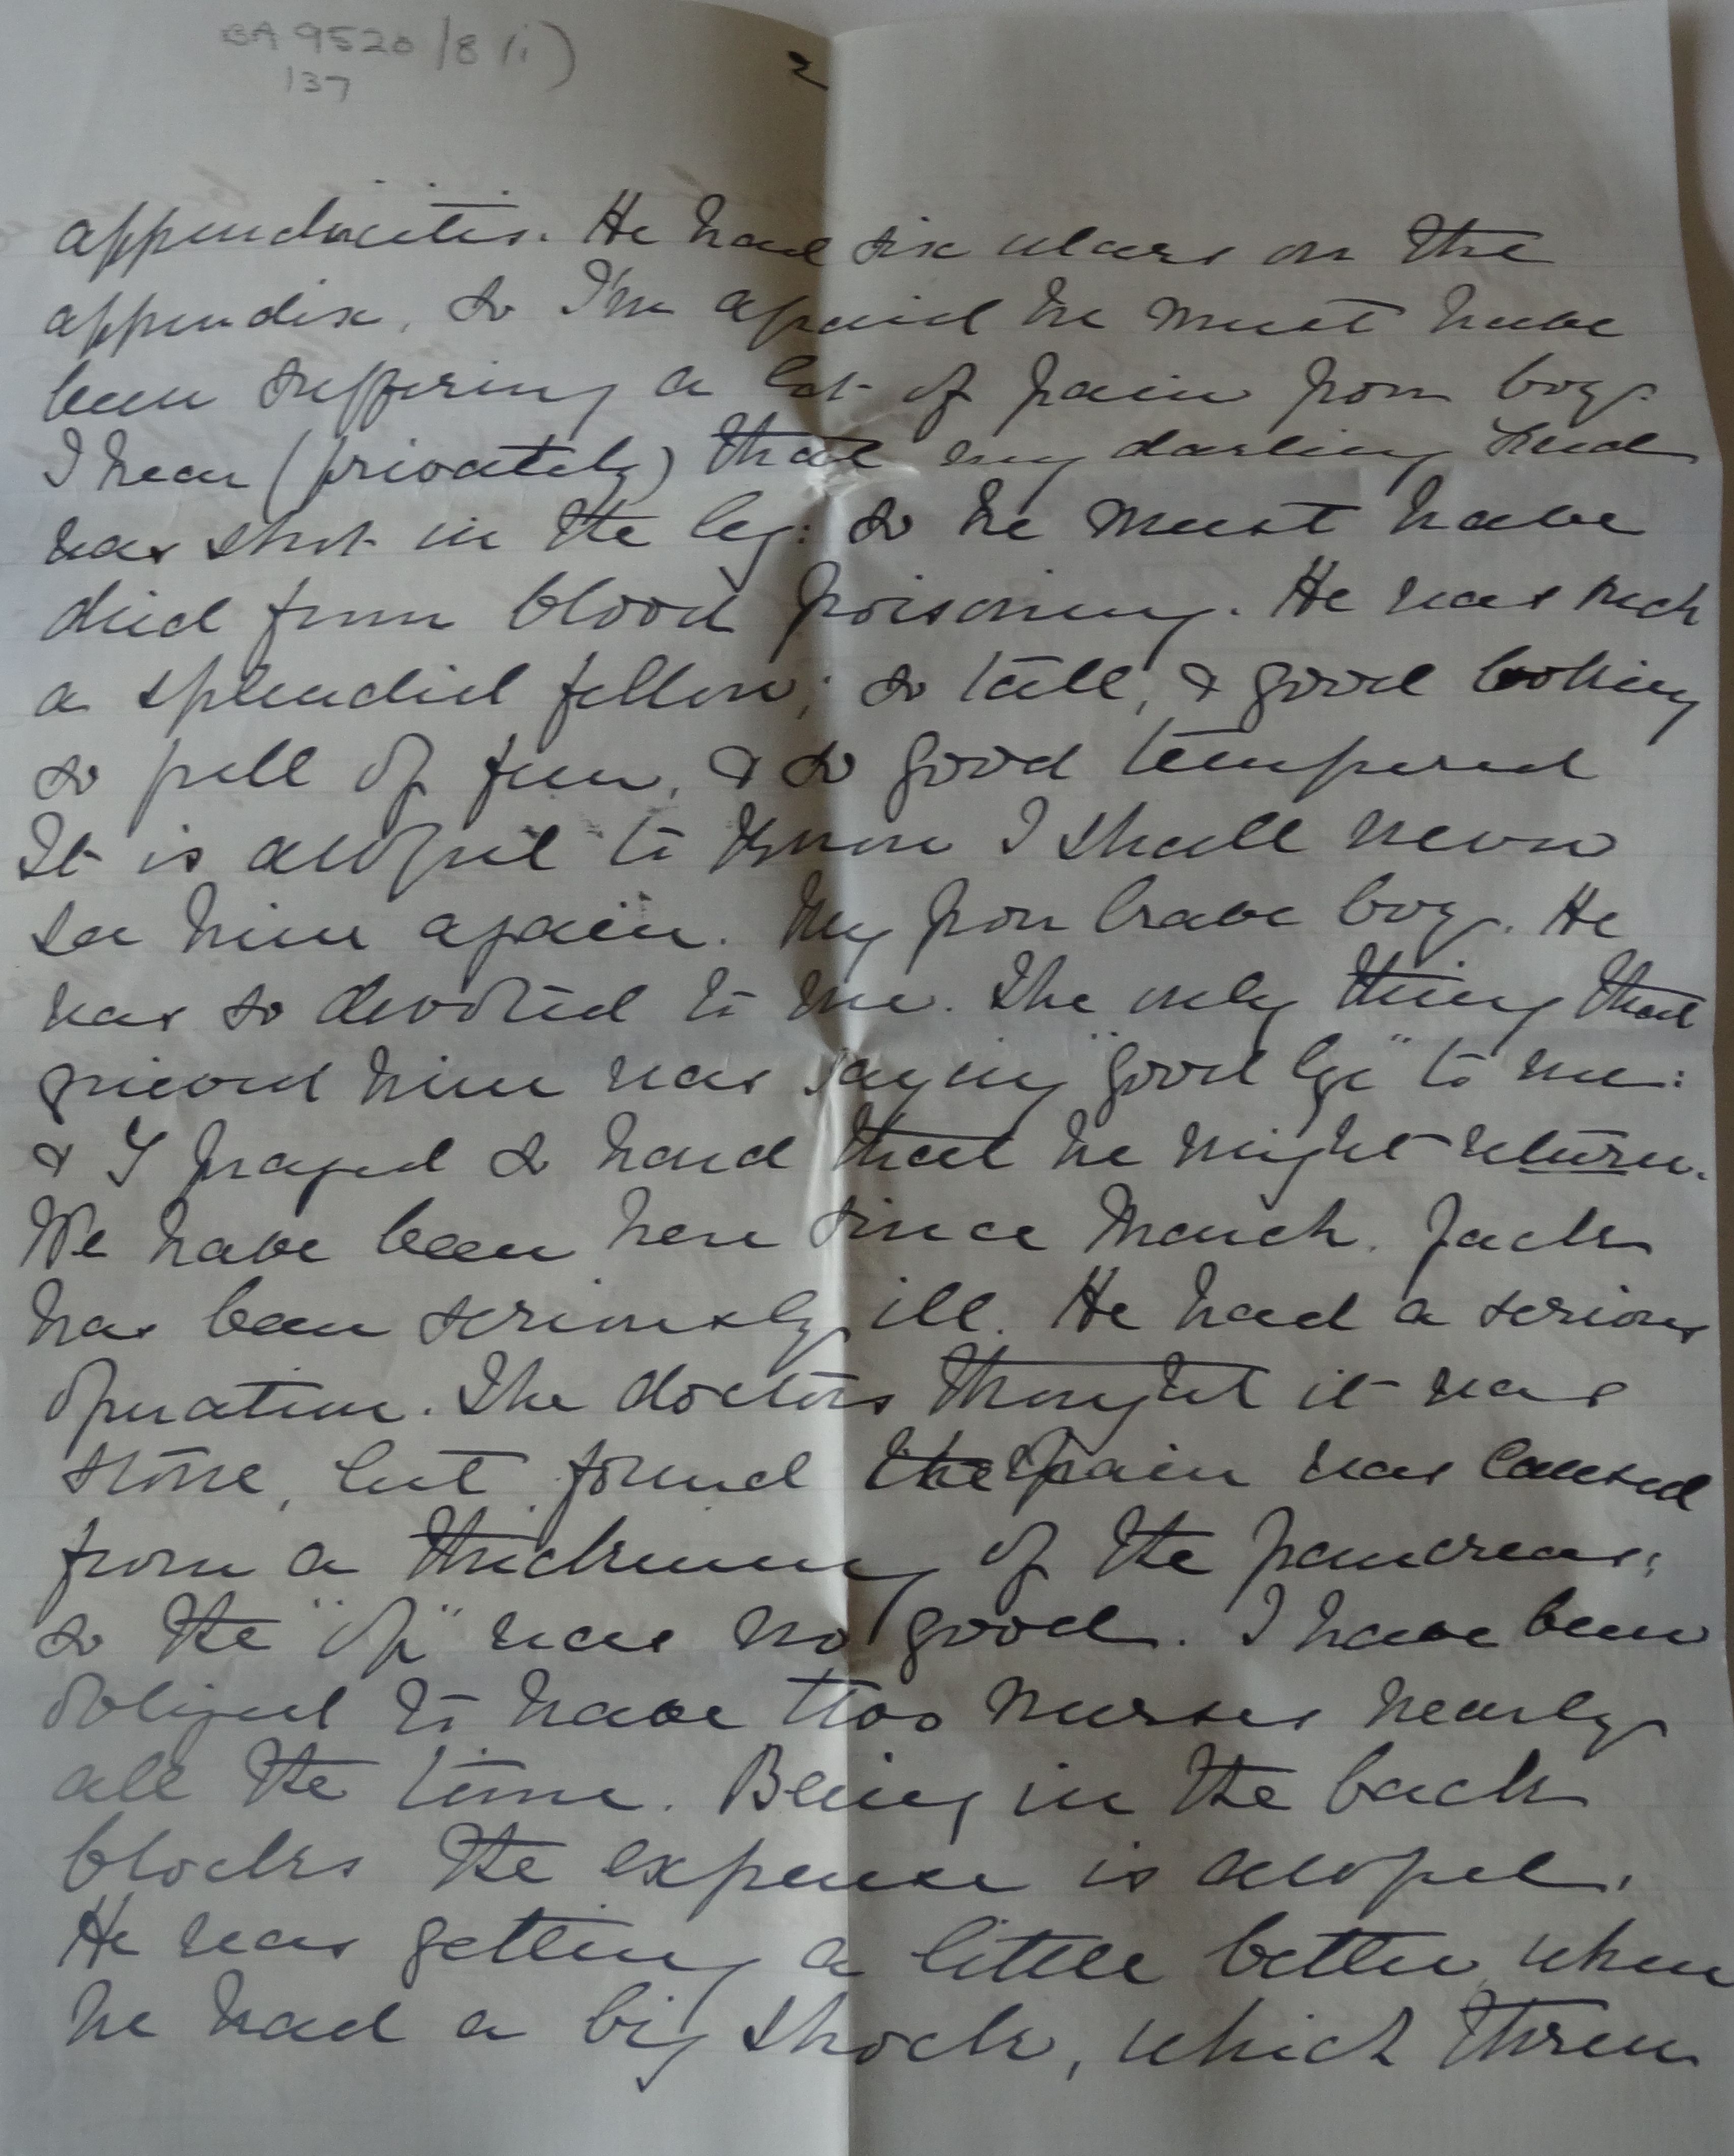 BA 9520/8 (i)
137
2
appendicitis. He had six ulcers on the
appendix, so I'm afraid he must have
been suffering a lot of pain poor boy.
I hear (privately) that my darling
was shot in the leg: so he must have
died from blood poisoning. He was such
a splendid fellow; so tall, & good looking
so full of fun, & so good tempered
It is awful to know I shall never
see him again. My poor brave boy. He
was so devoted to me. The only thing that
grieved him was saying "good bye" to me:
& I prayed so hard that he might return.
We have been here since March. Jack
has been seriously ill. He had a serious
operation. The doctors thought it was
stone, but found the pain was caused
from a thickening of the pancreas;
so the "op" was no good. I have been
obliged to have two nurses nearly
all the time. Being in the back
blocks the expense is awful.
He was getting a little better, when
he had a big shock, which threw